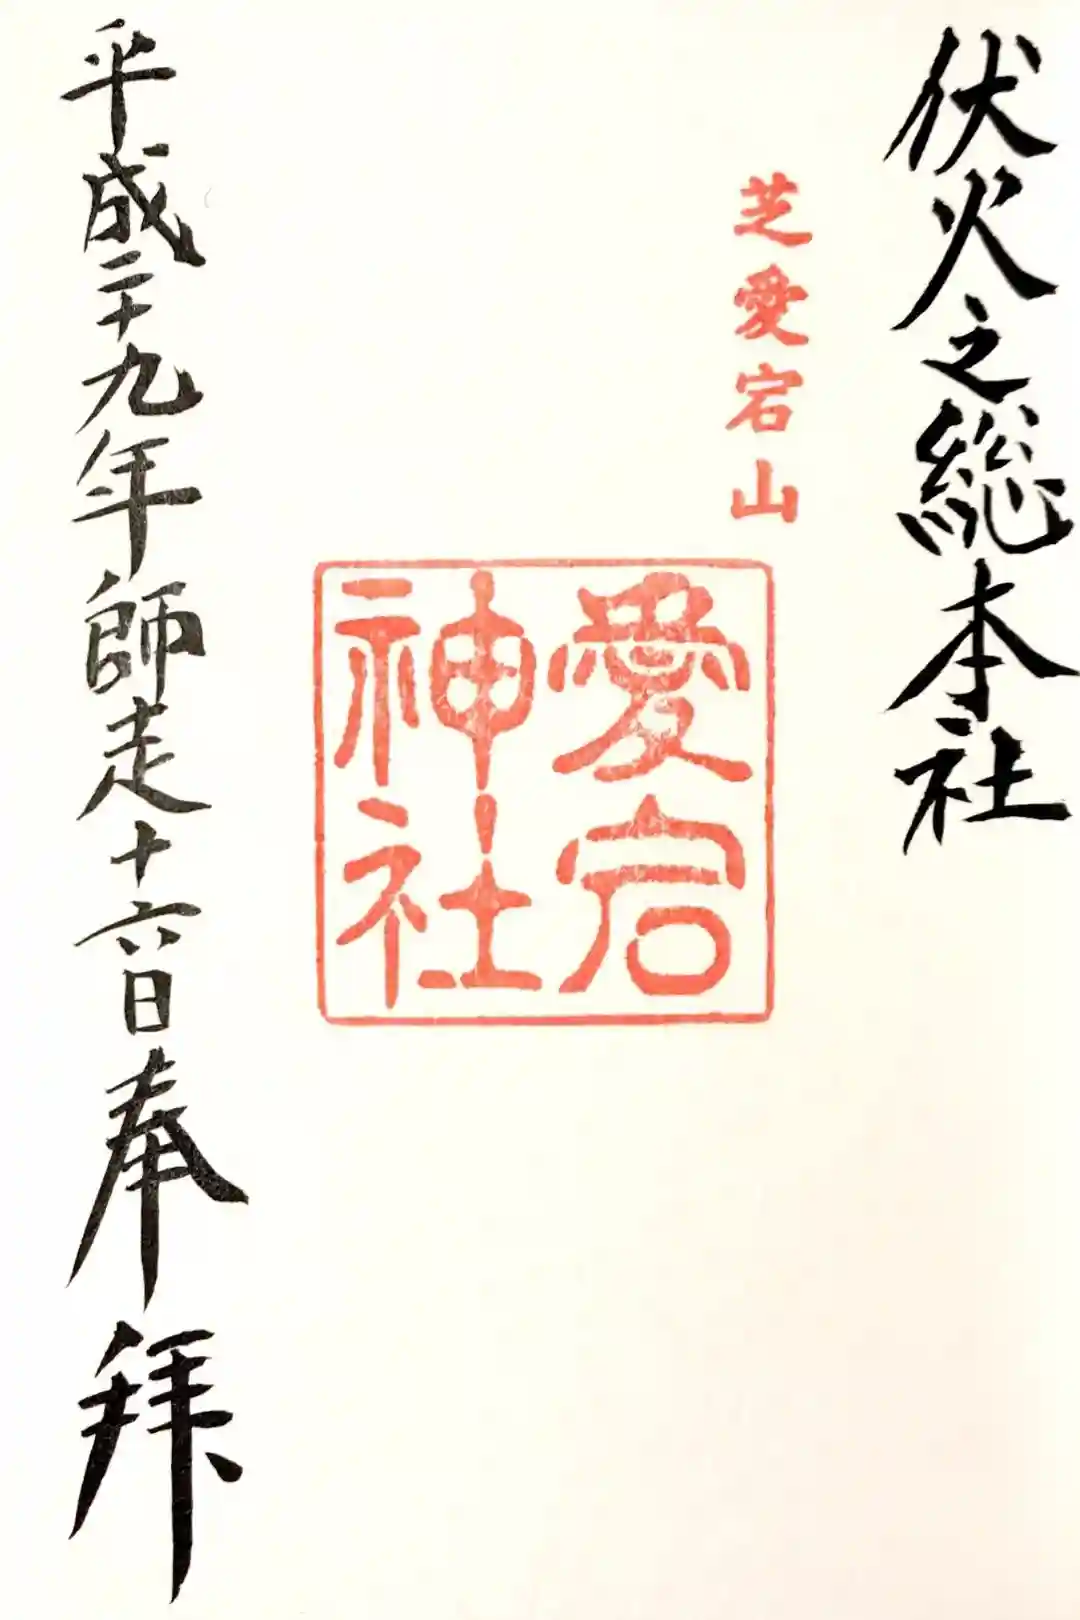 伏火之総本社
芝愛宕山
愛宕
神社
平成二十九年師走十六日奉拝